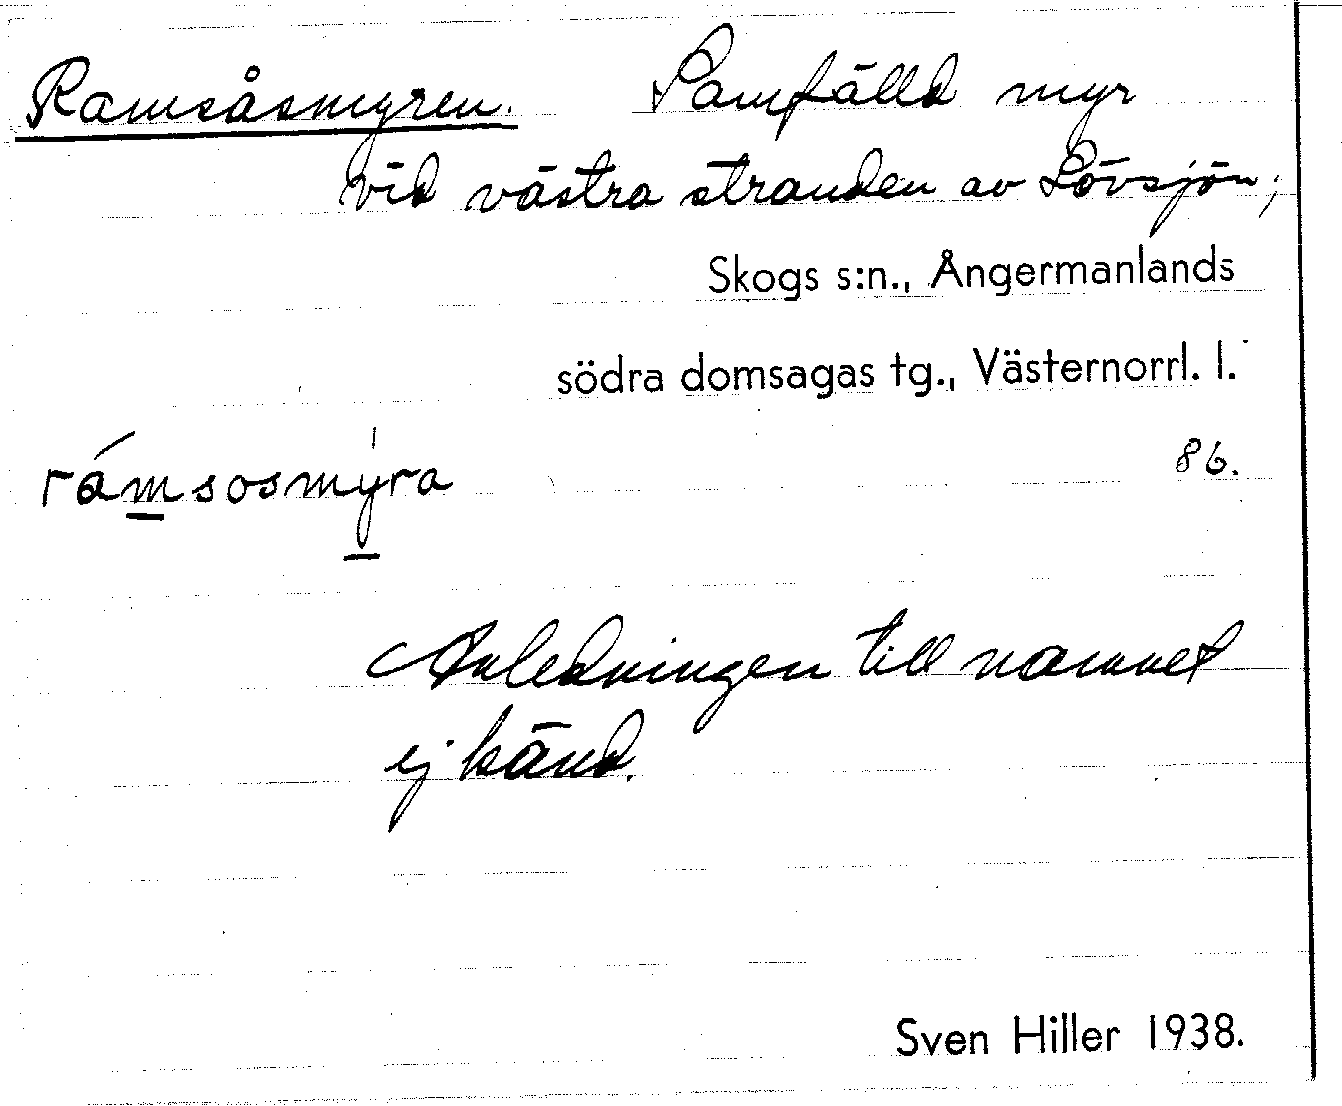 Ramsåsmyren. Samfälld myr
vid västra stranden av Lövsjön,
Skogs s:n., Ångermanlands
södra domsagas tg., Västernorrl. l.
86.
rámsosmyra
Anledningen till namnet
ej känd.
Sven Hiller 1938.